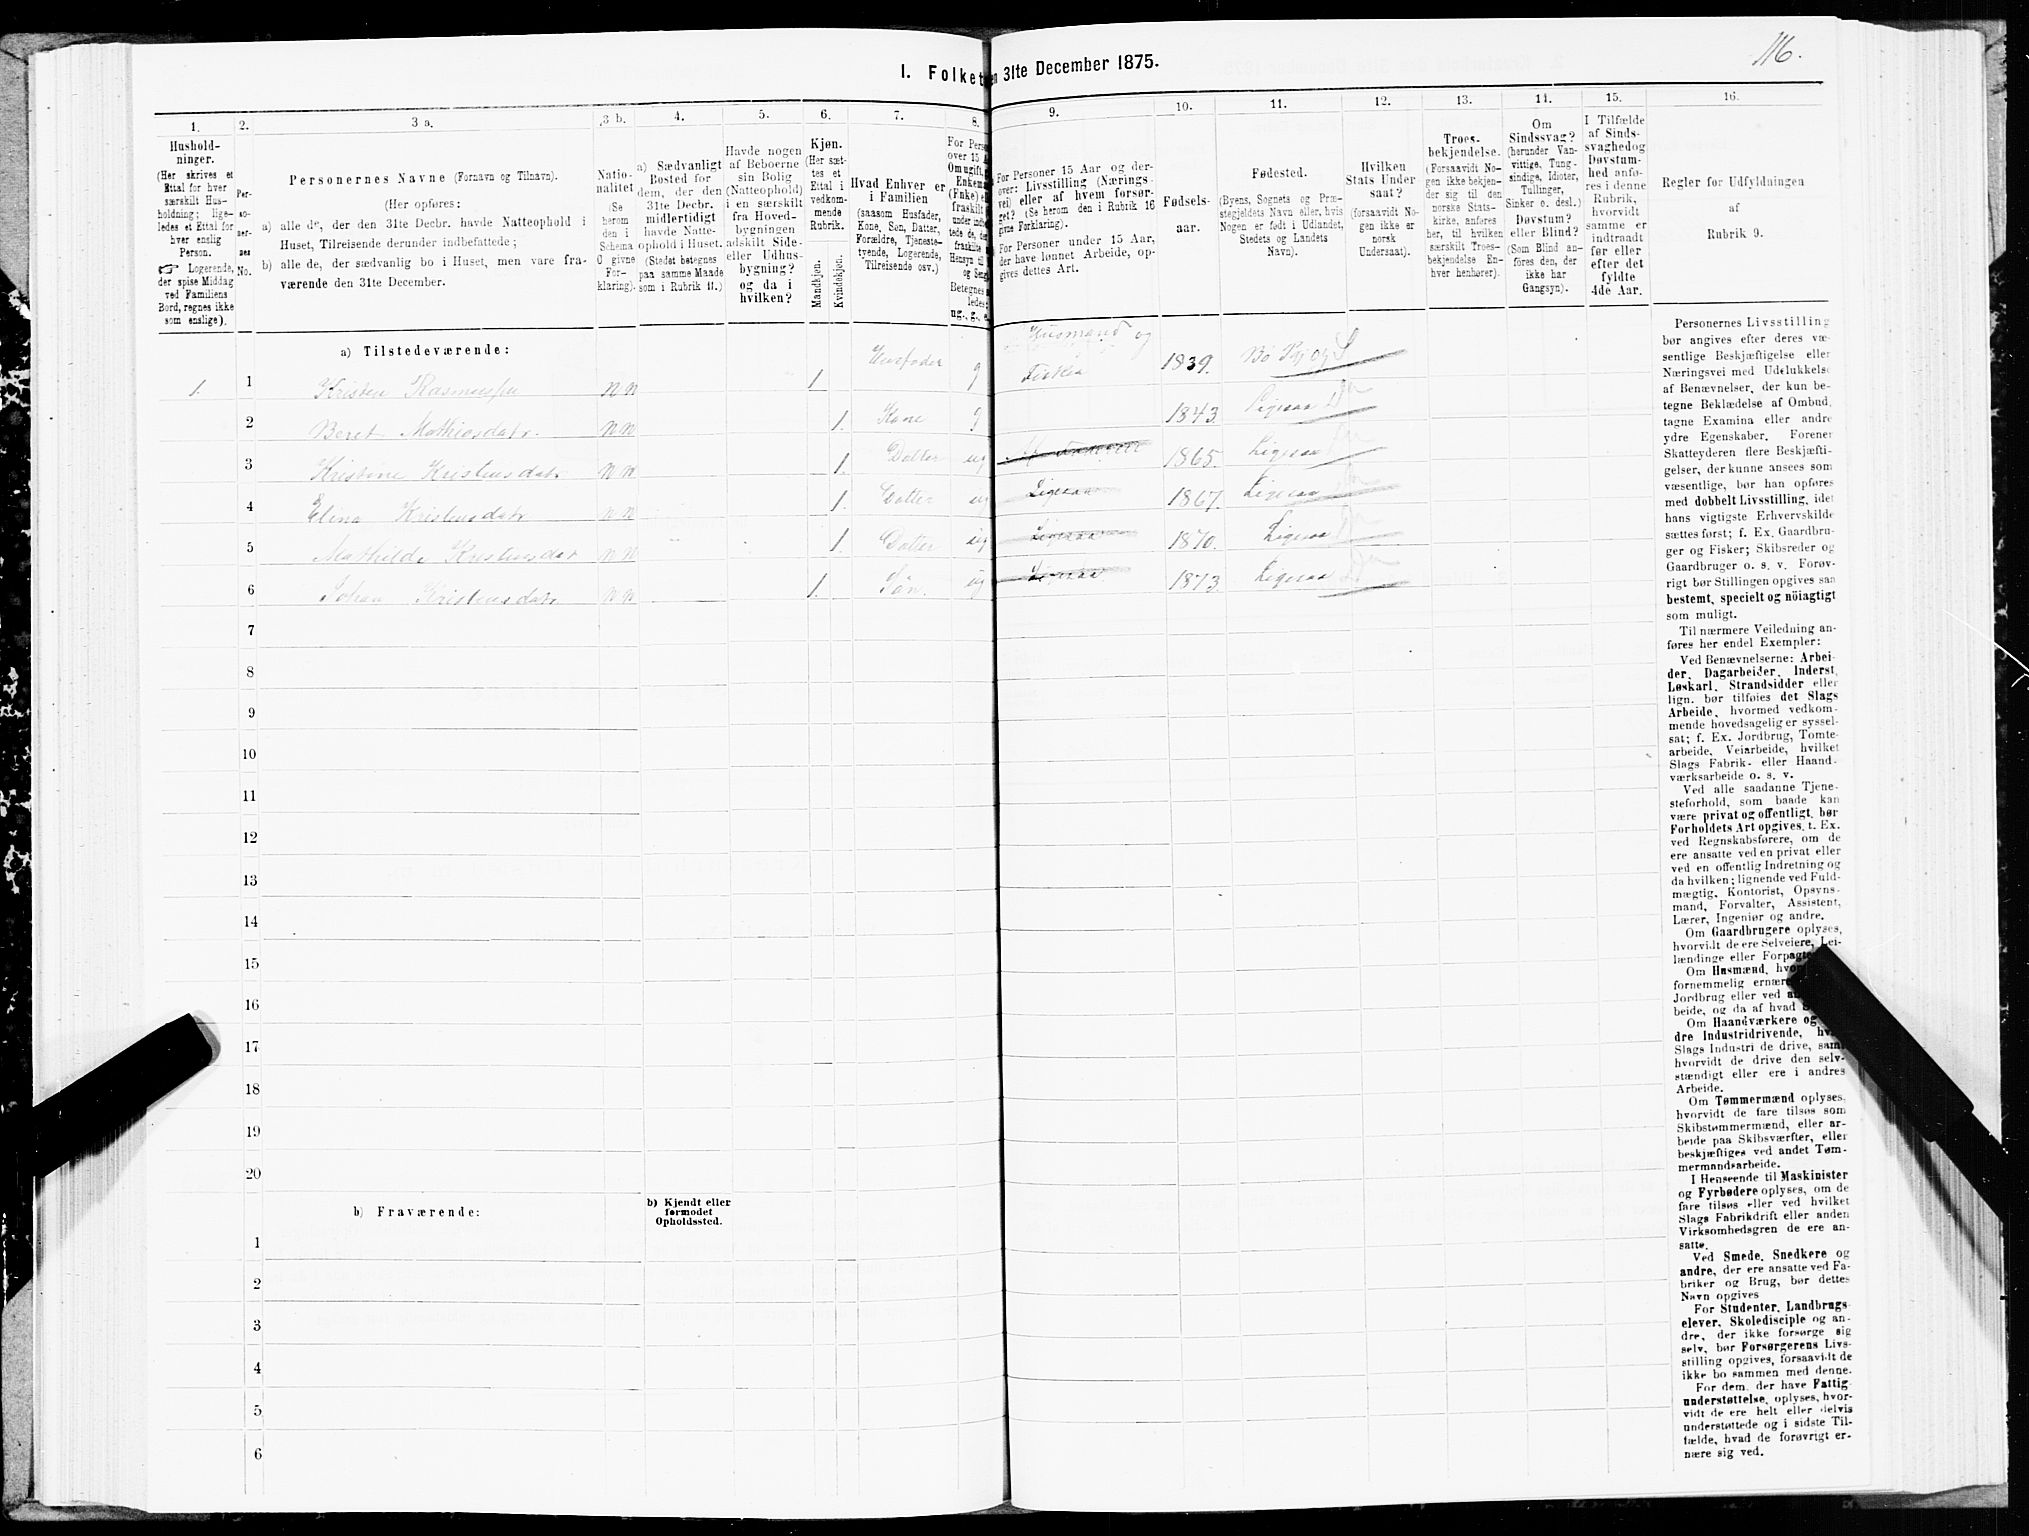 116.
I. Folket
en 31te December 1875.
1.
2.
3 a.
3 b.
4.
5.
6.
7.
8.
9.
10.
11.
12.
13.
14.
15.
16.
Hushold-
ninger.
(Her skrives et
Ettal for hver
særskilt Hus-
holdning; lige-
ledes et Ettal for
hver enslig
Person.
☞ Logerende,
der spise Middag
ved Familiens
Bord, regnes ikke
som enslige).
Per-
so-
ner-
nes
No.
Personernes Navne (Fornavn og Tilnavn).
(Her opføres:
a) alle de, der den 31te Decbr. havde Natteophold i
Huset, Tilreisende derunder indbefattede;
b) alle de, der sædvanlig bo i Huset, men vare fra-
værende den 31te December.
Natio-
nalitet
(Se
herom
den i
Schema
O givne
For-
klaring).
a) Sædvanligt
Bosted for
dem, der den
31te Decbr.
midlertidigt
havde Natte-
ophold i Huset.
(Stedet betegnes
paa samme Maade
som i Rubrik 11.)
Havde nogen
af Beboerne
sin Bolig
(Natteophold)
i en særskilt
fra Hoved-
bygningen
adskilt Side-
eller Udhus-
bygning?
og da i
hvilken?
Kjøn.
(Her sæt-
tes et
Ettal i
vedkom-
mende
Rubrik.
Mandkjøn.
Kvindekjøn.
Hvad Enhver er
i Familien
(saasom Husfader,
Kone, Søn, Datter,
Forældre, Tjeneste-
tyende, Logerende,
Tilreisende osv.)
For Perso
over 15 A
Om ugift,
Enkema
(Enke) e
fraskilt
under indb
tede de, de
fraskilte
Hensyn til
og Seng
Betegnes
ledes:
ug., g., e.
For Personer 15 Aar og der-
over: Livsstilling (Nærings-
vei) eller af hvem forsør-
get? (Se herom den i Rubrik 16
givne Forklaring).
For Personer under 15 Aar,
der have lønnet Arbeide, op-
gives dettes Art.
Fødsels-
aar.
Fødested.
(Byens, Sognets og Præ-
stegjeldets Navn eller, hvis
Nogen er født i Udlandet,
Stedets og Landets
Navn).
Hvilken
Stats Under
saat?
(forsaavidt No-
gen ikke er
norsk
Undersaat).
Troes-
bekjendelse.
(Forsaavidt No-
gen ikke bekjen-
der sig til den
norske Stats-
kirke, anføres
her, til hvilken
særskilt Troes-
bekjendelse En-
hver henhører).
Om
Sindssvag?
(herunder Van-
vittige, Tung-
sindige, Idioter,
Tullinger,
Sinker o. desl.)
Døvstum?
eller Blind?
(Som Blind an-
føres den, der
ikke har
Gangsyn).
I Tilfælde
af Sinds-
svaghed og
Døvstum-
hed anfø-
res i denne
Rubrik,
hvorvidt
samme er
indtraadt
før eller
efter det
fyldte
4de Aar.
Regler for Udfyldningen
af
Rubrik 9.
a) Tilstedeværende:
1. 1 Kristen Rasmussen n n 1. Husfader g Husmand og Fisker 1839. Bø
2 Beret Mathiasdatr. n n 1. Kone g 1843. Ligesaa
3 Kristine Kristensdatr n n 1. Datter ug 1865. Ligesaa
4 Elina Kristensdatr n n 1. Datter ug Ligesaa 1867. Ligesaa
5 Mathilde Kristensdat n n 1. Datter ug Ligesaa 1870. Ligesaa
6 Johan Kristensdatr n n 1. Søn. ug Ligesaa 1873. Ligesaa
7
8
9
10
11
12
13
14
15
16
17
18
19
20
b) Fraværende:
b) Kjendt eller
formodet
Opholdssted.
1
2
3
4
5
6
Personernes Livsstilling
bør angives efter deres væ-
sentlige Beskjæftigelse eller
Næringsvei med Udelukkelse
af Benævnelser, der kun be-
tegne Beklædelse af Ombud,
tagne Examina eller andre
ydre Egenskaber. Forener
Skatteyderen flere Beskjæfti-
gelser, der kunne ansees som
væsentlige, bør han opføres
med dobbelt Livsstilling, idet
hans vigtigste Erhvervskilde
sættes først; f. Ex. Gaardbru-
ger og Fisker; Skibsreder og
Gaardbruger o. s. v. Forøv-
rigt bør Stillingen opgives saa
bestemt, specielt og nöiagtigt
som muligt.
Til nærmere Veiledning an-
føres her endel Exempler:
Ved Benævnelserne: Arbei-
der, Dagarbeider, Inderst,
Løskarl, Strandsidder eller
lign. bør tilføies det Slags
Arbeide, hvormed vedkom-
mende hovedsagelig er syssel-
sat; f. Ex. Jordbrug, Tomte-
arbeide, Veiarbeide, hvilket
Slags Fabrik- eller Haand-
værksarbeide o. s. v.
Ved alle saadanne Tjene-
steforhold, som baade kan
være privat og offentligt, bør
Forholdets Art opgives, t. Ex.
ved Regnskabsførere, om de
ere ansatte ved en privat eller
ved en offentlig Indretning og
da hvilken; lignende ved Fuld-
mægtig, Kontorist, Opsyns-
mand, Forvalter, Assistent,
Lærer, Ingeniør og andre.
Om Gaardbrugere oplyses,
hvorvidt de ere Selveiere, Lei-
lændinge eller Forpagte
Om Husmænd, hvor
fornemmelig ernære
Jordbrug eller ved a
beide, og da af hvad
Om Haandværkere og
dre Industridrivende, hv
Slags Industri de drive, samt
hvorvidt de drive den selv-
stændigt eller ere i andres
Arbeide.
Om Tømmermænd oplyses,
hvorvidt de fare tilsøs som
Skibstømmermænd, eller ar-
beide paa Skibsværfter, eller
beskjæftiges ved andet Tøm-
mermandsarbeide.
I Henseende til Maskinister
og Fyrbødere oplyses, om de
fare tilsøs eller ved hvilket
Slags Fabrikdrift eller anden
Virksomhedsgren de ere an-
satte.
Ved Smede, Snedkere og
andre, der ere ansatte ved Fa-
briker og Brug, bør dettes
Navn opgives
For Studenter, Landbrugs-
elever, Skoledisciple og an-
dre, der ikke forsørge sig
selv, bør Forsørgerens Livs-
stilling opgives, forsaavidt de
ikke bo sammen med denne.
For dem, der have Fattig-
understøttelse, oplyses, hvor-
vidt de ere helt eller delvis
understøttede og i sidste Til-
fælde, hvad de forøvrigt er-
nære sig ved.